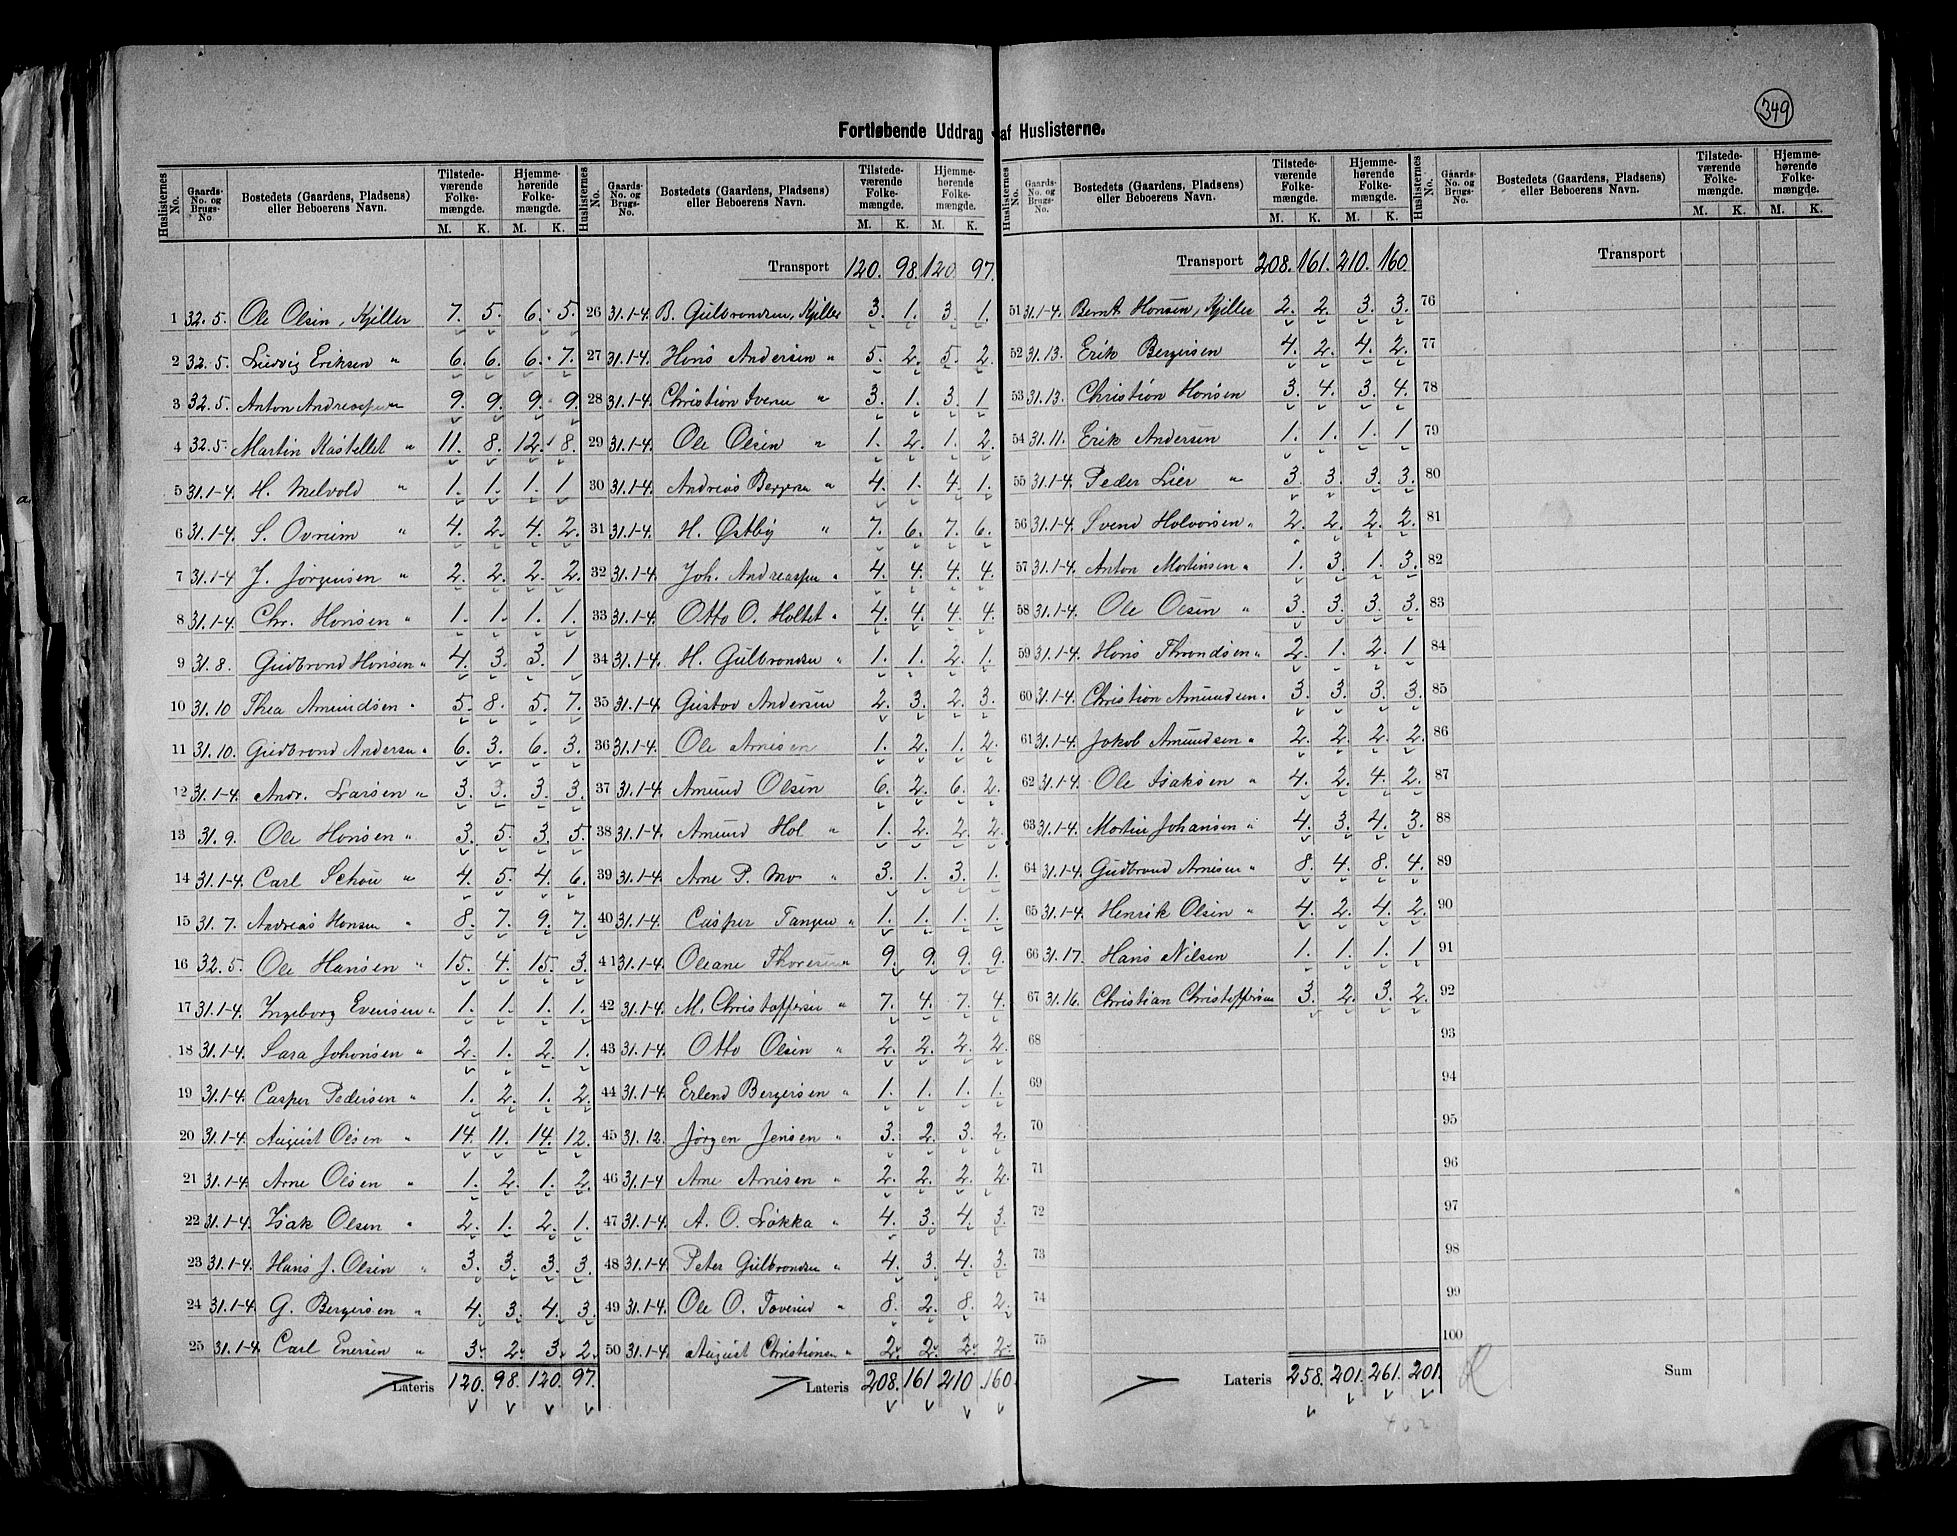 349
Fortløbende Uddrag af Huslisterne.
Huslisternes No. Gaards-No. og Brugs-No. Bostedets (Gaardens, Pladsens) eller Beboerens Navn. Tilstedeværende Folkemængde. M. K. Hjemmehørende Folkemængde. M. K.
1 32.5. Ole Olsen, Kjeller 7. 5. 6. 5.
2 32.5. Ludvig Eriksen " 6. 6. 6. 7.
3 32.5. Anton Andreassen 9. 9. 9. 9.
4 32.5. Martin Kastellet " 11. 8. 12. 8.
5 31.1-4. H. Melvold " 1. 1. 1. 1
6 31.1-4. S. Ovrum " 4. 2. 4. 2.
7 31.1-4 J. Jørgensen " 2. 2. 2. 2.
8 31.1-4. Chr. Hansen " 1. 1. 1. 1.
9 31.8. Gudbrand Hansen " 4. 3. 3. 1
10 31.10 Thea Amundsen " 5. 8. 5. 7.
11 31.10. Gudbrand Andersen " 6. 3. 6. 3.
12 31.1-4. Andr. Larsen " 3. 3. 3. 3.
13 31.9. Ole Hansen " 3. 5. 3. 5.
14 31.1-4. Carl Schou " 4. 5. 4. 6.
15 31.7. Andreas Hansen " 8. 7. 9. 7.
16 32.5. Ole Hansen " 15. 4. 15. 3.
17 31.1-4. Ingeborg Evensen " 1. 1. 1. 1.
18 31.1-4. Sara Johansen " 2. 1. 2. 1.
19 31.1-4. Casper Pedersen " 1. 2. 1. 2.
20 31.1-4. August Olsen " 14. 11. 14. 12.
21 31.1-4. Arne Olsen " 1. 2. 1. 2.
22 31.1-4. Isak Olsen " 2. 1. 2. 1.
23 31.1-4. Hans J. Olsen " 3. 3. 3. 3.
24 31.1-4. G. Bergersen " 4. 3. 4. 3.
25 31.1-4 Carl Enersen " 3. 2. 3. 2.
Lateris 120. 98. 120. 97.
Huslisternes No. Gaards-No. og Brugs-No. Bostedets (Gaardens, Pladsens) eller Beboerens Navn. Tilstedeværende Folkemængde. M. K. Hjemmehørende Folkemængde. M. K.
Transport 120. 98. 120. 97.
26 31.1-4. B. Gulbrandsen, Kjeller 3. 1. 3. 1.
27 31.1-4. Hans Andersen " 5. 2. 5. 2.
28 31.1-4. Christian Iversen " 3. 1. 3. 1
29 31.1-4. Ole Olsen " 1. 2. 1. 2.
30 31.1-4. Andreas Bergersen " 4. 1. 4. 1.
31 31.1-4. H. Østby " 7. 6. 7. 6.
32 31.1-4. Joh. Andreassen " 4. 4. 4. 4.
33 31.1-4. Otto O. Holtet " 4. 4. 4. 4.
34 31.1-4. H. Gulbrandsen " 1. 1. 2. 1.
35 31.1-4. Gustav Andersen 2. 3. 2. 3.
36 31.1-4. Ole Arnesen 1. 2. 1. 2.
37 31.1-4. Amund Olsen 6. 2. 6. 2.
38 31.1-4. Amund Hol " 1. 2. 2. 2.
39 31.1-4. Arne P. Mo " 3. 1. 3. 1.
40 31.1-4. Casper Tangen " 1. 1. 1. 1.
41 31.1-4. Oleane Thoresen " 9. 9. 9. 9.
42 31.1-4. M. Christoffersen " 7. 4. 7. 4.
43 31.1-4. Otto Olsen " 2. 2. 2. 2.
44 31.1-4. Erlend Bergersen " 1. 1. 1. 1.
45 31.12. Jørgen Jensen " 3. 2. 3. 2.
46 31.1-4 Arne Arnesen " 2. 2. 2. 2.
47 31.1-4. A. O. Løkka " 4. 3. 4. 3.
48 31.1-4. Peter Gulbrandsen " 4. 3. 4. 3.
49 31.1-4. Ole O. Toverud " 8. 2. 8. 2.
50 31.1-4. August Christiansen " 2. 2. 2. 2.
Lateris 208. 161 210 160.
Huslisternes No. Gaards-No. og Brugs-No. Bostedets (Gaardens, Pladsens) eller Beboerens Navn. Tilstedeværende Folkemængde. M. K. Hjemmehørende Folkemængde. M. K.
Transport 208. 161. 210. 160
51 31.1-4. Bernt Hansen, Kjeller 2. 2. 3. 3.
52 31.13. Erik Bergersen 4. 2. 4. 2.
53 31.13. Christian Hansen 3. 4. 3. 4.
54 31.11. Erik Andersen 1. 1. 1. 1
55 31.1-4 Peder Lier " 3. 3. 3. 3.
56 31.1-4. Svend Halvorsen " 2. 2. 2. 2.
57 31.1-4. Anton Mortensen " 1. 3. 1. 3.
58 31.1-4. Ole Olsen " 3. 3. 3. 3.
59 31.1-4. Hans Throndsen " 2. 1. 2. 1
60 31.1-4. Christian Amundsen " 3. 3. 3. 3.
61 31.1-4. Jakob Amundsen " 2. 2. 2. 2.
62 31.1-4. Ole Isaksen " 4. 2. 4. 2.
63 31.1-4. Martin Johansen " 4. 3. 4. 3.
64 31.1-4. Gudbrand Arnesen " 8. 4. 8. 4.
65 31.1-4. Henrik Olsen " 4. 2. 4. 2.
66 31.17. Hans Nilsen 1. 1. 1. 1
67 31.16. Christian Christoffersen 3. 2. 3. 2.
68
69
70
71
72
73
74
75
Lateris 258. 201. 261. 201.
462
Huslisternes No. Gaards-No. og Brugs-No. Bostedets (Gaardens, Pladsens) eller Beboerens Navn. Tilstedeværende Folkemængde. M. K. Hjemmehørende Folkemængde. M. K.
Transport
76
77
78
79
80
81
82
83
84
85
86
87
88
89
90
91
92
93
94
95
96
97
98
99
100
Sum